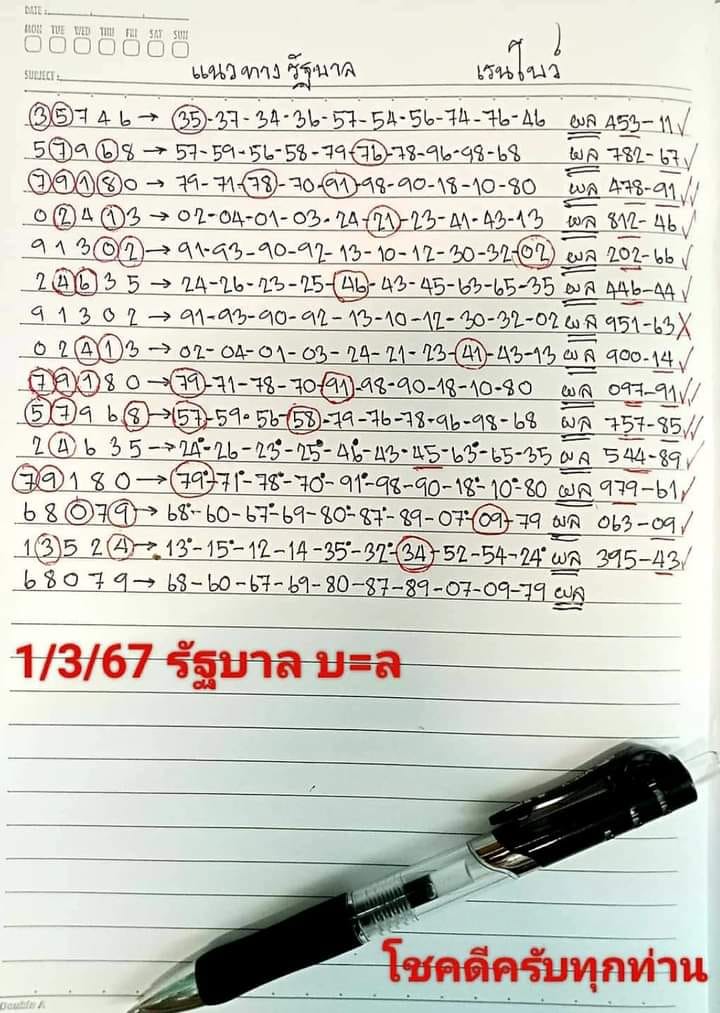 DATE:
MON TUE WED THU FRI SAT SUN
SUBJECT: แนวทางรัฐบาล เรนโบว์
35746→ 35-37-34-36-57-54-56-74-76-46 ผล 453-11✓
57968→57-59-56-58-79-76-78-96-98-68 ผล 782-67✓
79180→ 79-71-78-70-91-98-90-18-10-80 ผล 478-91✓✓
02413→ 02-04-01-03-24-21-23-41-43-13 ผล 812-46✓
91302→91-93-90-92-13-10-12-30-32-02 ผล 202-66✓
24635→ 24-26-23-25-46-43-45-63-65-35 ผล 446-44✓
91302→91-93-90-92-13-10-12-30-32-02 ผล 951-63X
02413→02-04-01-03-24-21-23-41-43-13 ผล 900-14✓
79180→79-71-78-70-91-98-90-18-10-80 ผล 097-91✓✓
57968→57-59-56-58-79-76-78-96-98-68 ผล 757-85✓✓
24635→24-26-23-25-46-43-45-63-65-35 ผล 544-89✓
79180→79-71-78-70-91-98-90-18-10-80 ผล 979-61✓
68079→ 68-60-67-69-80-87-89-07-09-79 ผล 063-09✓
13524→ 13-15-12-14-35-32-34-52-54-24 ผล 395-43✓
68079→ 68-60-67-69-80-87-89-07-09-79 ผล
1/3/67 รัฐบาล บ=ล
โชคดีครับทุกท่าน
Double A